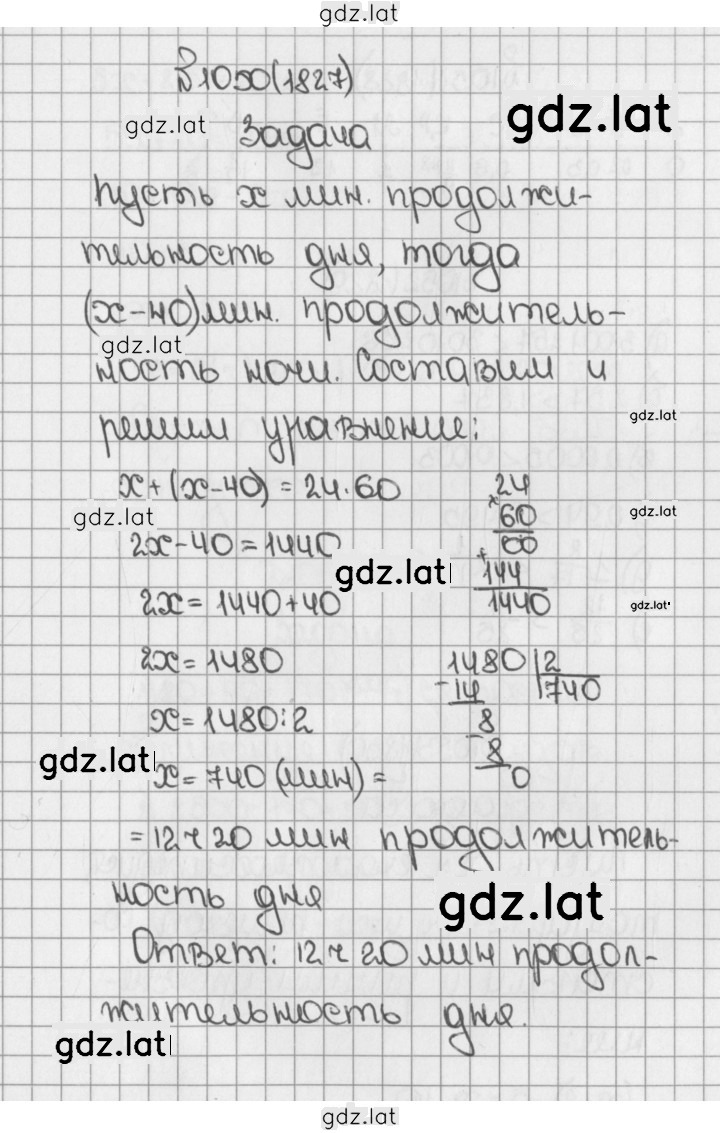 gdz.lat
№1050(1827)
gdz.lat
gdz.lat
Задача
Пусть x мин. продолжи-
тельность дня, тогда
(x-40)мин. продолжитель-
gdz.lat
ность ночи. Составим и
gdz.lat
решим уравнение:
x+(x-40)=24·60
24
×60
gdz.lat
gdz.lat
2x-40=1440
00
gdz.lat
+144
2x=1440+40
1440
gdz.lat
2x=1480
1480 2
-14 740
x=1480:2
8
gdz.lat
-8
x=740(мин)=
0
=12ч20мин продолжитель-
ность дня
gdz.lat
Ответ: 12ч20мин продол-
жительность дня.
gdz.lat
gdz.lat